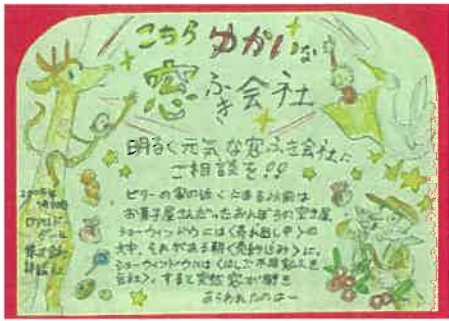 こちらゆかいな
窓ふき会社
明るく元気な窓ふき会社に
ご相談を!!
ビリーの家の近くにある以前は
お菓子屋さんだったおんぼろの空き屋
ショーウィンドウには〈売れ出し中〉の
文字、それがある朝〈売約済み〉に、
ショーウィンドウには〈はしご不用窓ふき
会社〉。すると突然窓が開き
あらわれたのは〜
2005年
ロアルド・
ダール
評論社